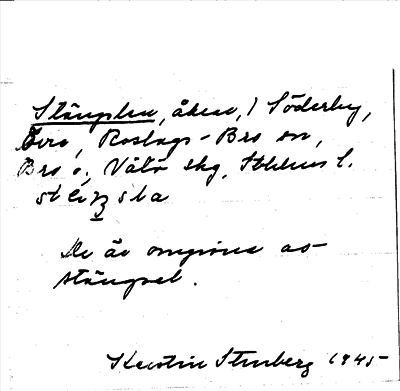 Stängslen, åker, / Söderby,
Evro, Roslags-Bro sn,
Bro o. Vätö skg, Sthlms l.
De är omgivna av
stängsel.
Kerstin Stenberg 1945